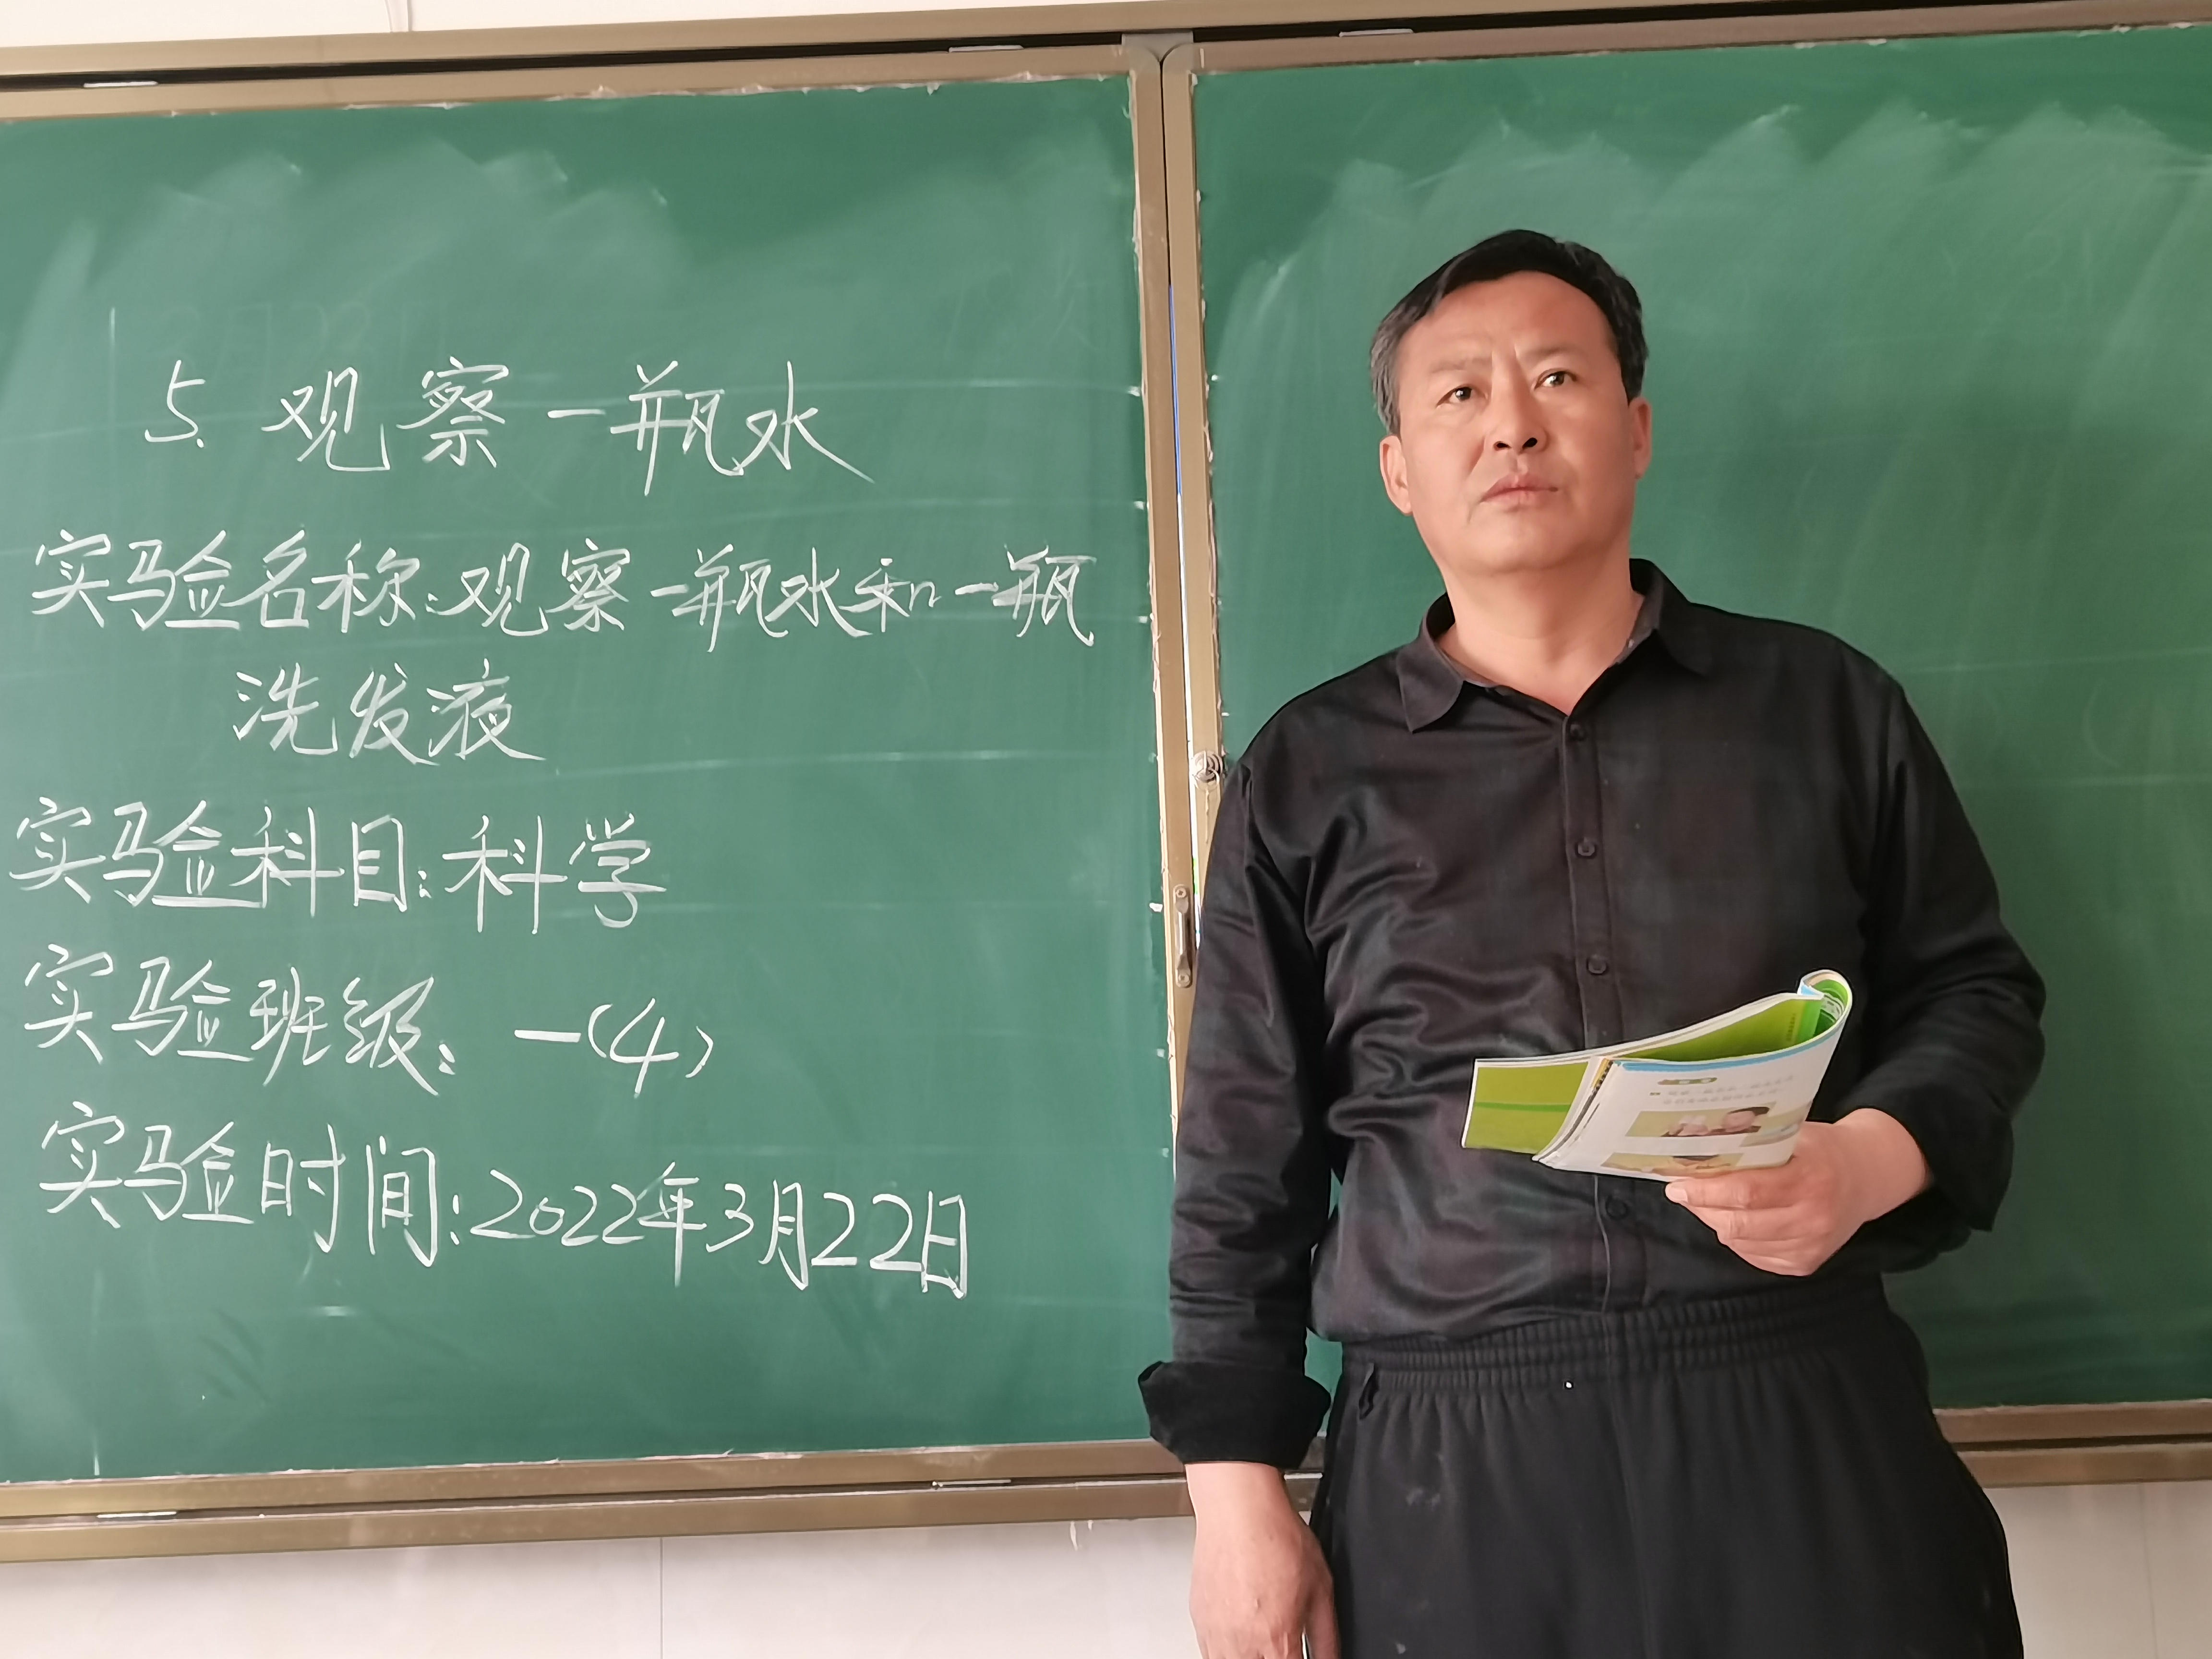 5. 观察一瓶水
实验名称:观察一瓶水和一瓶
洗发液
实验科目:科学
实验班级:一(4)
实验时间:2022年3月22日